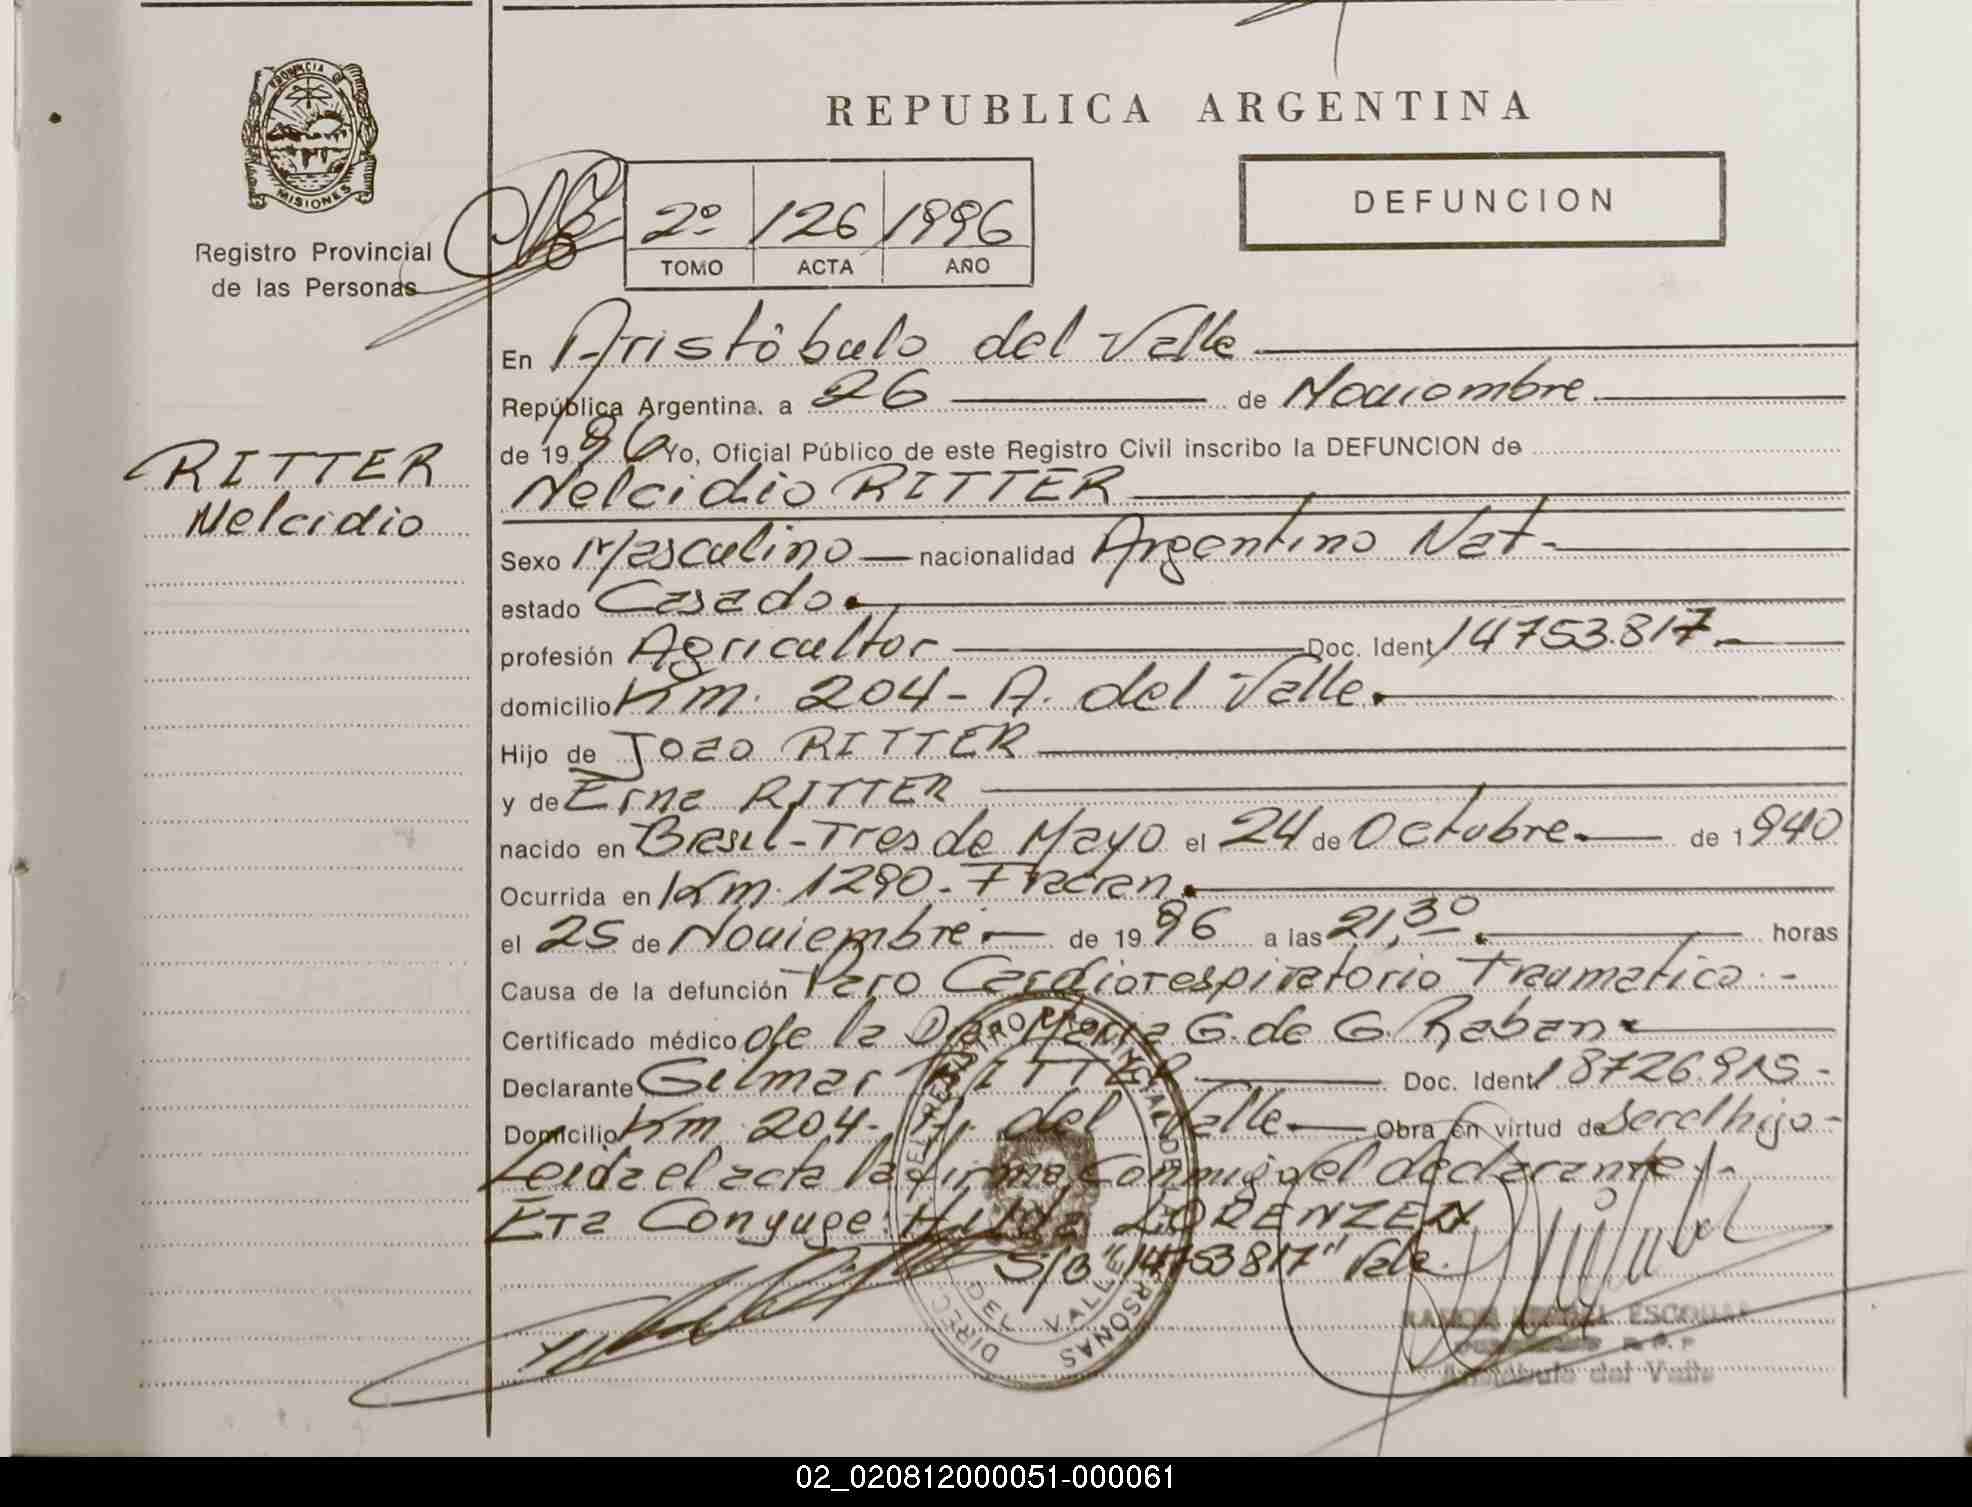 REPUBLICA ARGENTINA
PROVINCIA D
MISIONES
Registro Provincial
de las Personas
2º 126 1996
TOMO ACTA AÑO
DEFUNCION
RITTER
Nelcidio
En Aristóbulo del Valle
República Argentina. a 26 de Noviembre
de 1996 Yo, Oficial Público de este Registro Civil inscribo la DEFUNCION de
Nelcidio RITTER
Sexo Masculino nacionalidad Argentino Nat-
estado Casado.
profesión Agricultor Doc. Ident 14753.817-
domicilio Km. 204- A. del Valle.
Hijo de Joao RITTER
y de Erna RITTER
nacido en Brasil-Tres de Mayo el 24 de Octubre. de 1940
Ocurrida en Km. 1290- Fracran.
el 25 de Noviembre.- de 1996 a las 21,30. horas
Causa de la defunción Paro Cardiorespiratorio Traumatico.-
Certificado médico de la Dra Maria G. de G. Raban
Declarante Gilmar RITTER Doc. Ident 18726.915-
Domicilio Km 204- A. del Valle Obra en virtud de ser el hijo-
Leida el acta la firma conmigo el declarante.-
Era Conyuge: Hilda LORENZEN
S/B "14753817" Vale.
DEL VALLE
ESCOBAR
Aristóbulo del Valle
02_020812000051-000061